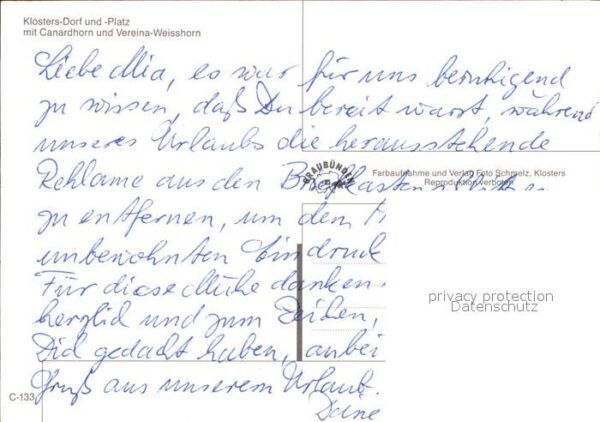 Klosters-Dorf und -Platz
mit Canardhorn und Vereina-Weisshorn
Liebe Mia, es war für uns beruhigend
zu wissen, daß Du bereit warst, während
unseres Urlaubs die herausstehende
Reklame aus den Briefkästen
zu entfernen, um dem H
unbewohnten Eindruck
Für diese Mühe danken
herzlich und zum Zeichen,
Dich gedacht haben, anbei
Gruß aus unserem Urlaub.
Deine
GRAUBÜNDEN
Farbaufnahme und Verlag Foto Schmelz, Klosters
Reproduktion verboten
privacy protection
Datenschutz
C-133